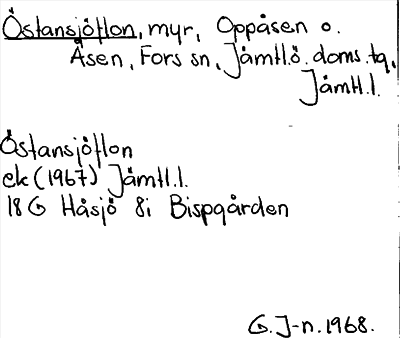 Östansjöflon, myr, Oppåsen o.
Åsen, Fors sn, Jämtl.ö. doms.tg,
Jämtl.l.
Östansjöflon
ek (1967) Jämtl.l.
18 G Håsjö 8i Bispgården
G. J-n. 1968.